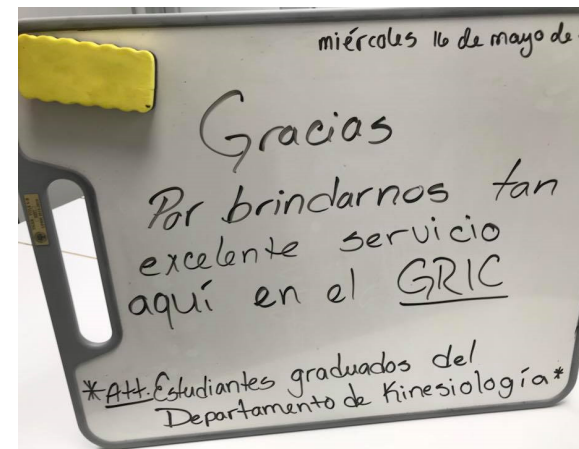 miércoles 16 de mayo de
Gracias
Por brindarnos tan
excelente servicio
aquí en el GRIC
*Att. Estudiantes graduados del
Departamento de Kinesiología*